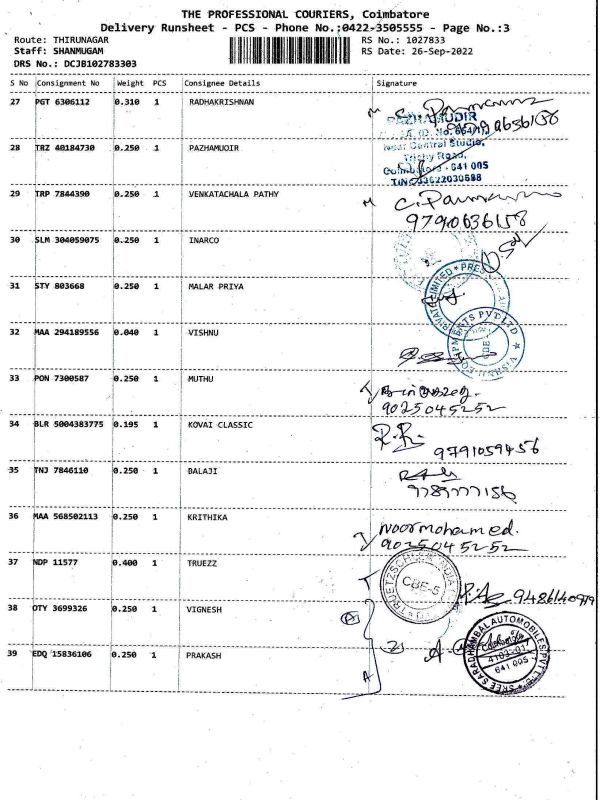 THE PROFESSIONAL COURIERS, Coimbatore
Delivery Runsheet - PCS - Phone No.:0422-3505555 - Page No.:3
Route: THIRUNAGAR RS No.: 1027833
Staff: SHANMUGAM RS Date: 26-Sep-2022
DRS No.: DCJB102783303
S No Consignment No Weight PCS Consignee Details Signature
27 PGT 6306112 0.310 1 RADHAKRISHNAN
PAZHAMUDIR
28 TRZ 40184730 0.250 1 PAZHAMUOIR
Near Central Studio,
Trichy Road,
Coimbatore - 641 005
29 TRP 7844390 0.250 1 VENKATACHALA PATHY
9790636158
30 SLM 304059075 0.250 1 INARCO
31 STY 803668 0.250 1 MALAR PRIYA
PRIVATE LIMITED
32 MAA 294189556 0.040 1 VISHNU
33 PON 7300587 0.250 1 MUTHU
9025045252
34 BLR 5004383775 0.195 1 KOVAI CLASSIC
9791059456
35 TNJ 7846110 0.250 1 BALAJI
9789777156
36 MAA 568502113 0.250 1 KRITHIKA
Noormohamed.
9025045252
37 NDP 11577 0.400 1 TRUEZZ
CBE-5
38 OTY 3699326 0.250 1 VIGNESH
39 EDQ 15836106 0.250 1 PRAKASH
SREE SARADHAMBAL AUTOMOBILES
641 005